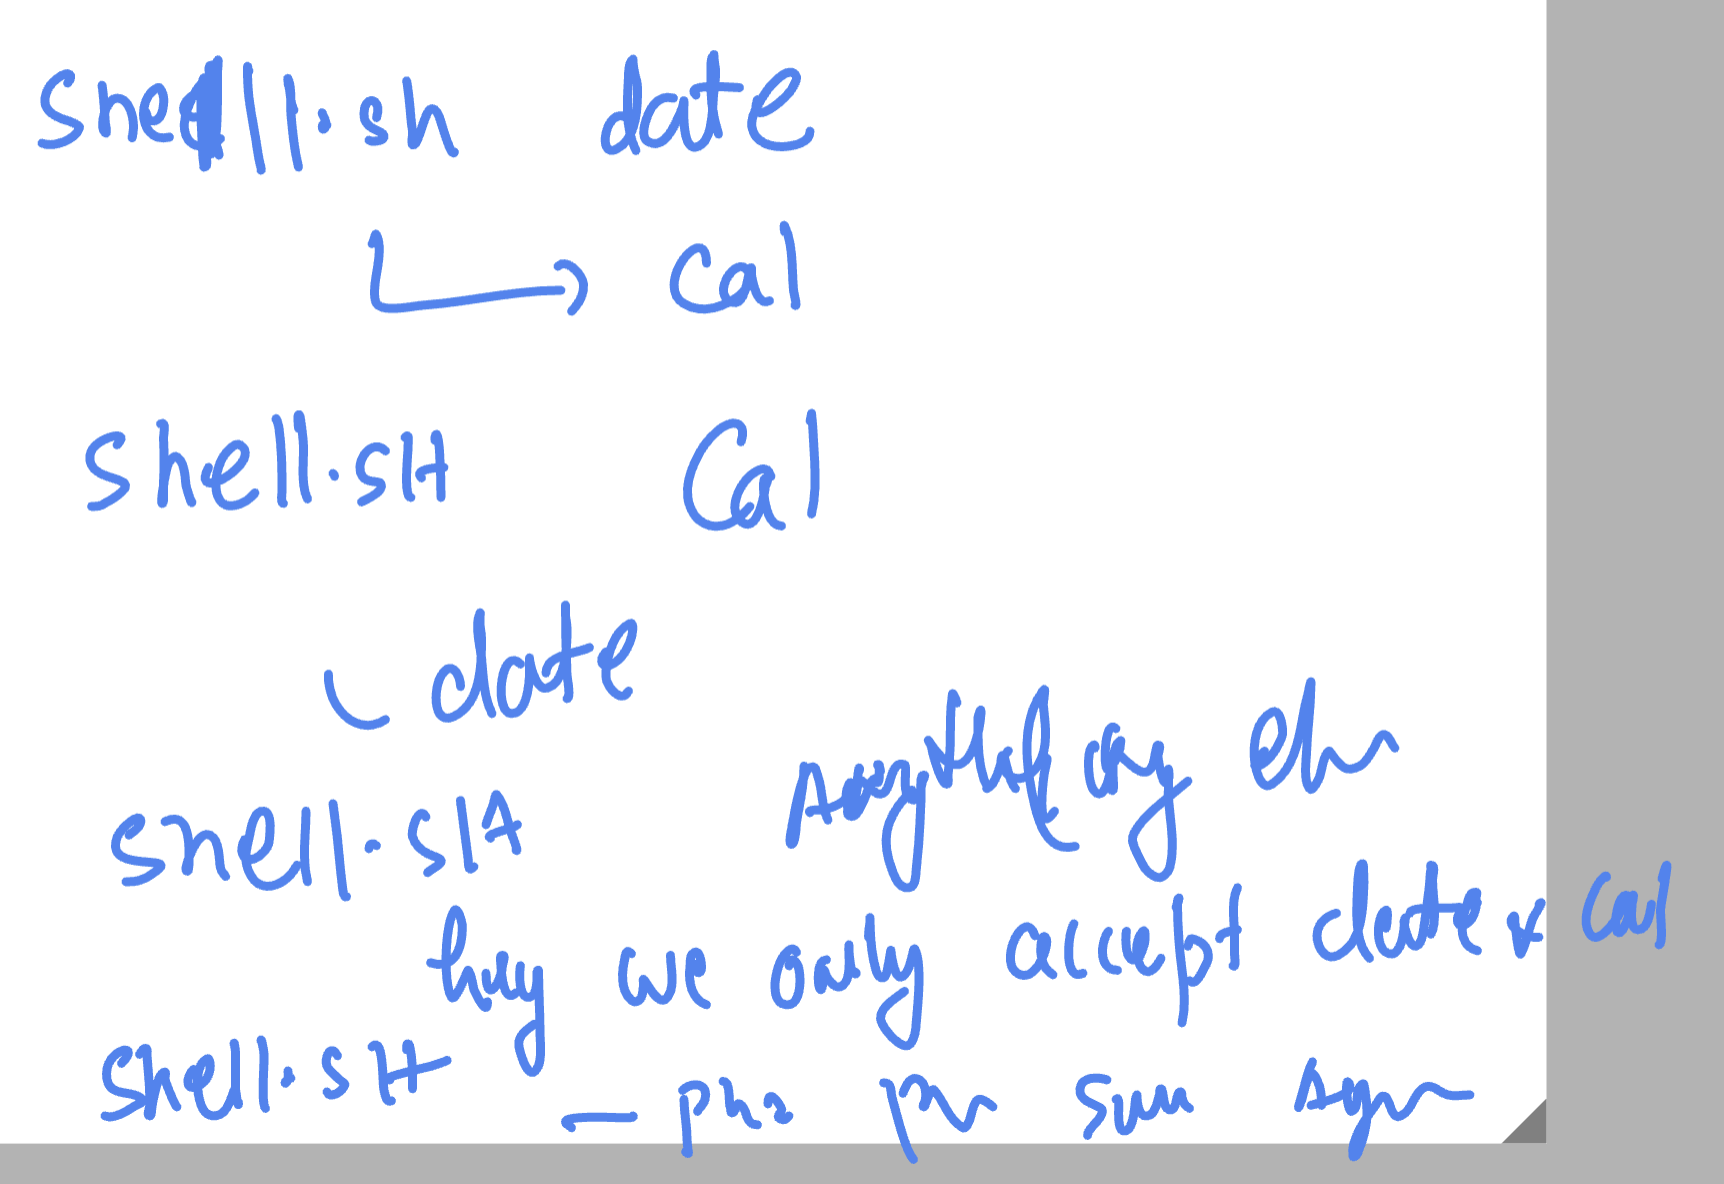 shell.sh date
cal
shell.sH Cal
date
shell.sH Anything any
hey we only accept date & cal
shell.sH - pls